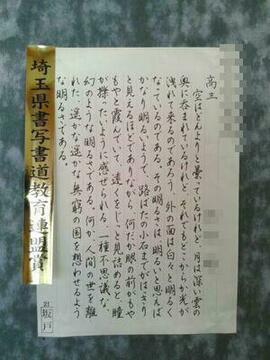 埼玉県書写書道教育連盟賞
21 坂戸
高三
空はどんよりと曇っているけれど、月は深い雲の
奥に呑まれているけれど、それでもどこからか光が
洩れて来るのであろう、外の面は白々と明るく
なっているのである。その明るさは、明るいと思えば
かなり明るい、ようで、路ばたの小石までがはっきり
と見えるほどでありながら、何だか眼の前がもや
もやと霞んでいて、遠くをじっと見詰めると、瞳
が擽ったいように感ぜられる、一種不思議な、
幻のような明るさである。何か、人間の世を離
れた、遥かな遥かな無窮の国を想わせるよう
な明るさである。